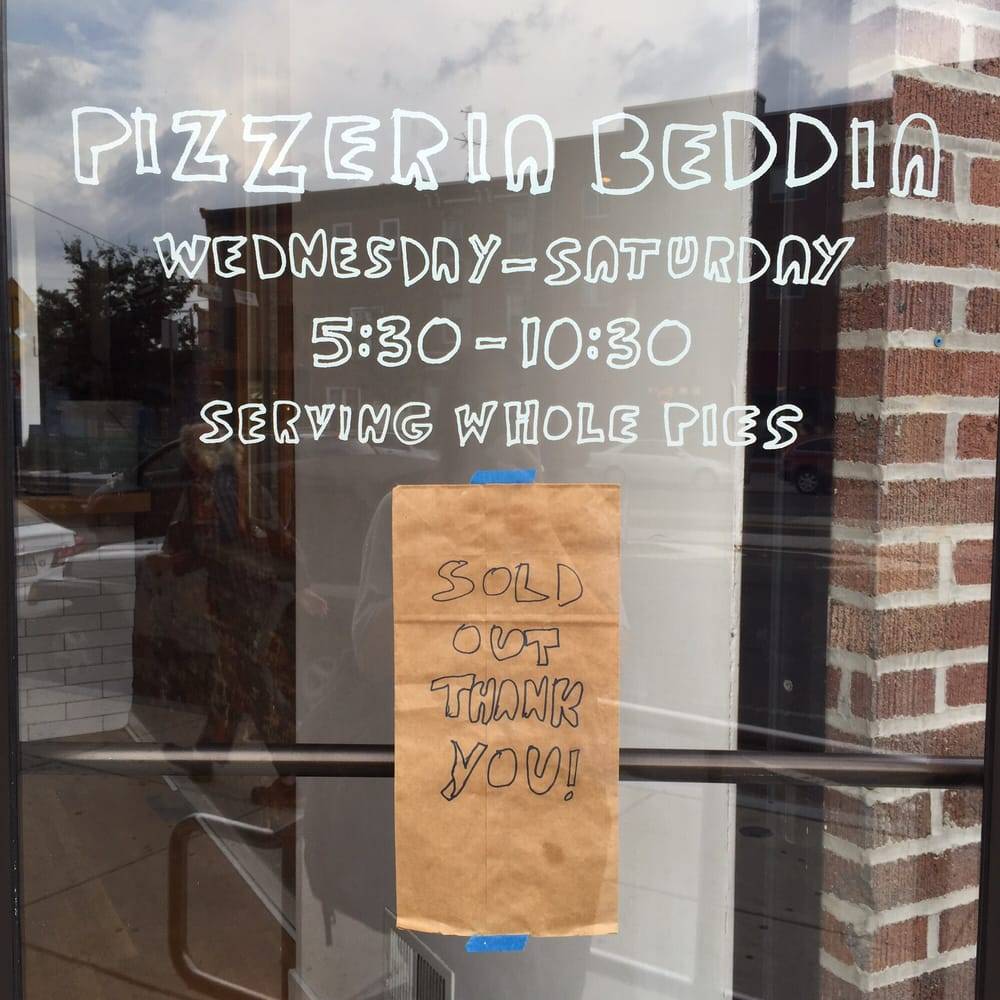 PIZZERIA BEDDIA
WEDNESDAY-SATURDAY
5:30-10:30
SERVING WHOLE PIES
SOLD
OUT
THANK
YOU!